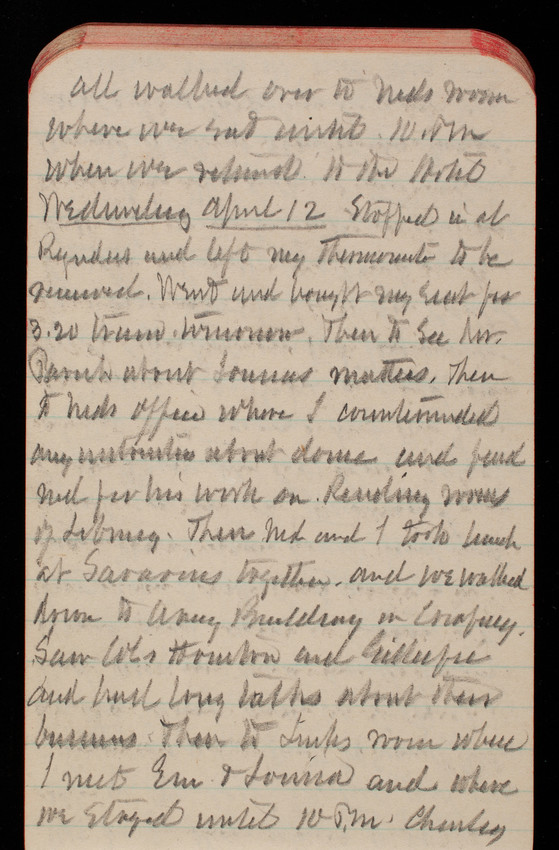 all walked over to Neds room
where we sat until 10 P.M
when we returned to the Hotel
Wednesday April 12 Stopped in at
and left my thermometer to be
Went and bought my seat for
3.20 train tomorrow. Then to See Mr.
Parrish about Louisas matters. Then
to Neds office where I countermanded
my about dome and paid
Ned for his work on Reading rooms
of Library. Then Ned and I took lunch
at Savarins together. and we walked
down to Army Building in
Saw Cols Houston and Gillespie
and had long talks about their
business. Then to room where
I met Em & Louisa and where
we stayed until 10 P.M. Charley